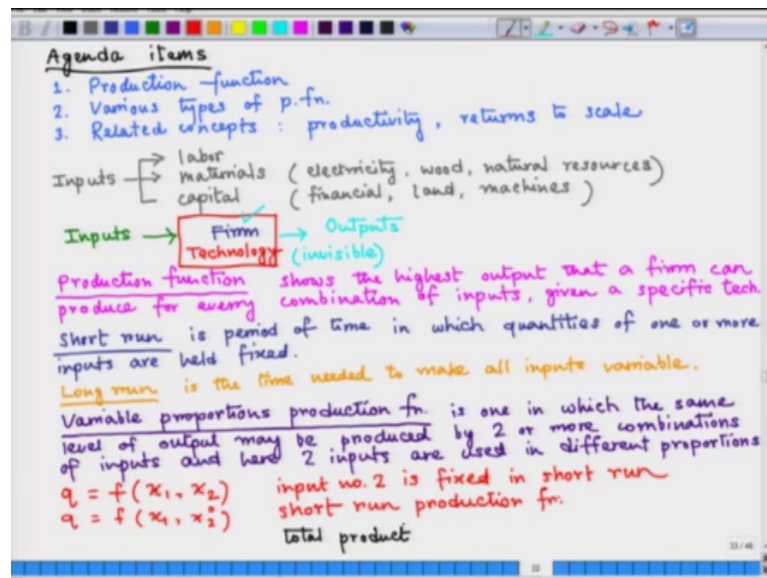 Agenda items
1. Production function
2. Various types of p.fn.
3. Related concepts : productivity, returns to scale
Inputs → labor
→ materials (electricity, wood, natural resources)
capital (financial, land, machines)
Inputs → Firm → Outputs
Technology (invisible)
Production function shows the highest output that a firm can
produce for every combination of inputs, given a specific tech.
Short run is period of time in which quantities of one or more
inputs are held fixed.
Long run is the time needed to make all inputs variable.
Variable proportions production fn. is one in which the same
level of output may be produced by 2 or more combinations
of inputs and here 2 inputs are used in different proportions
q = f(x₁, x₂) input no. 2 is fixed in short run
q = f(x₁, x₂°) short run production fn.
total product
33/46
33